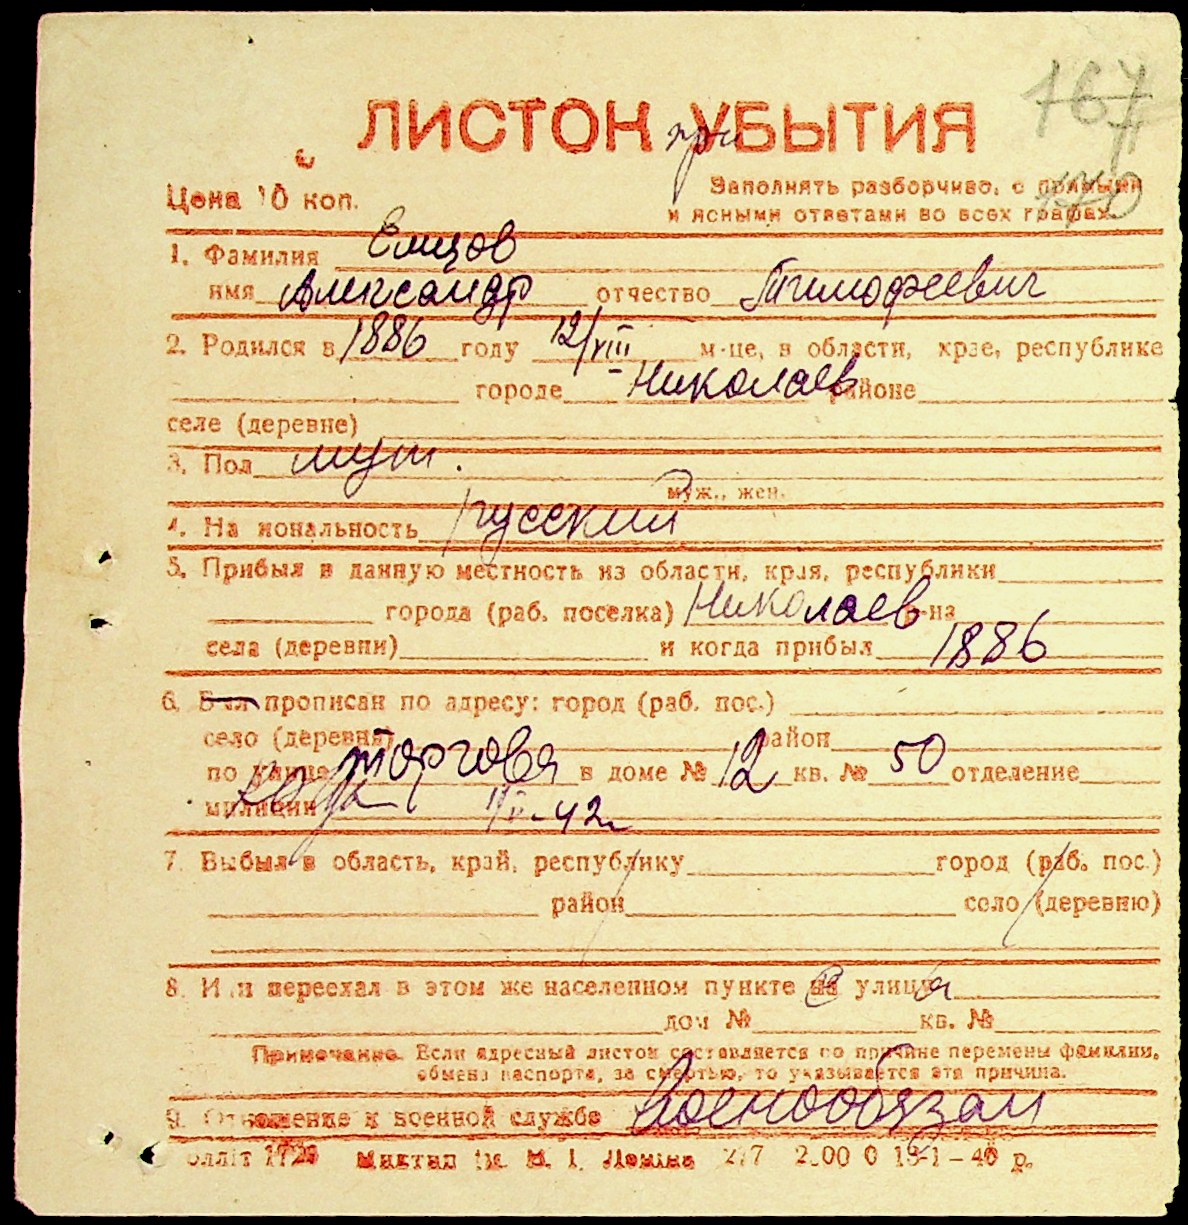 167
ЛИСТОК при УБЫТИЯ
170
Цена 10 коп. Заполнять разборчиво, с прямыми
и ясными ответами во всех графах.
1. Фамилия Емцов
имя Александр отчество Тимофеевич
2. Родился в 1886 году 12/VIII м-це, в области, крае, республике
городе Николаев районе
селе (деревне)
3. Пол муж.
муж., жен.
4. На иональность русский
5. Прибыл в данную местность из области, края, республики
города (раб. поселка) Николаев р-на
села (деревни) и когда прибыл 1886
6. Был прописан по адресу: город (раб. пос.)
село (деревня) район
по улице Торговая в доме № 12 кв. № 50 отделение
милиции 42
7. Выбыл в область, край, республику город (раб. пос.)
район село (деревню)
8. Или переехал в этом же населенном пункте на улицу
дом № кв. №
Примечание. Если адресный листок составляется по причине перемены фамилии,
обмена паспорта, за смертью, то указывается эта причина.
9. Отношение к военной службе Военнообязан